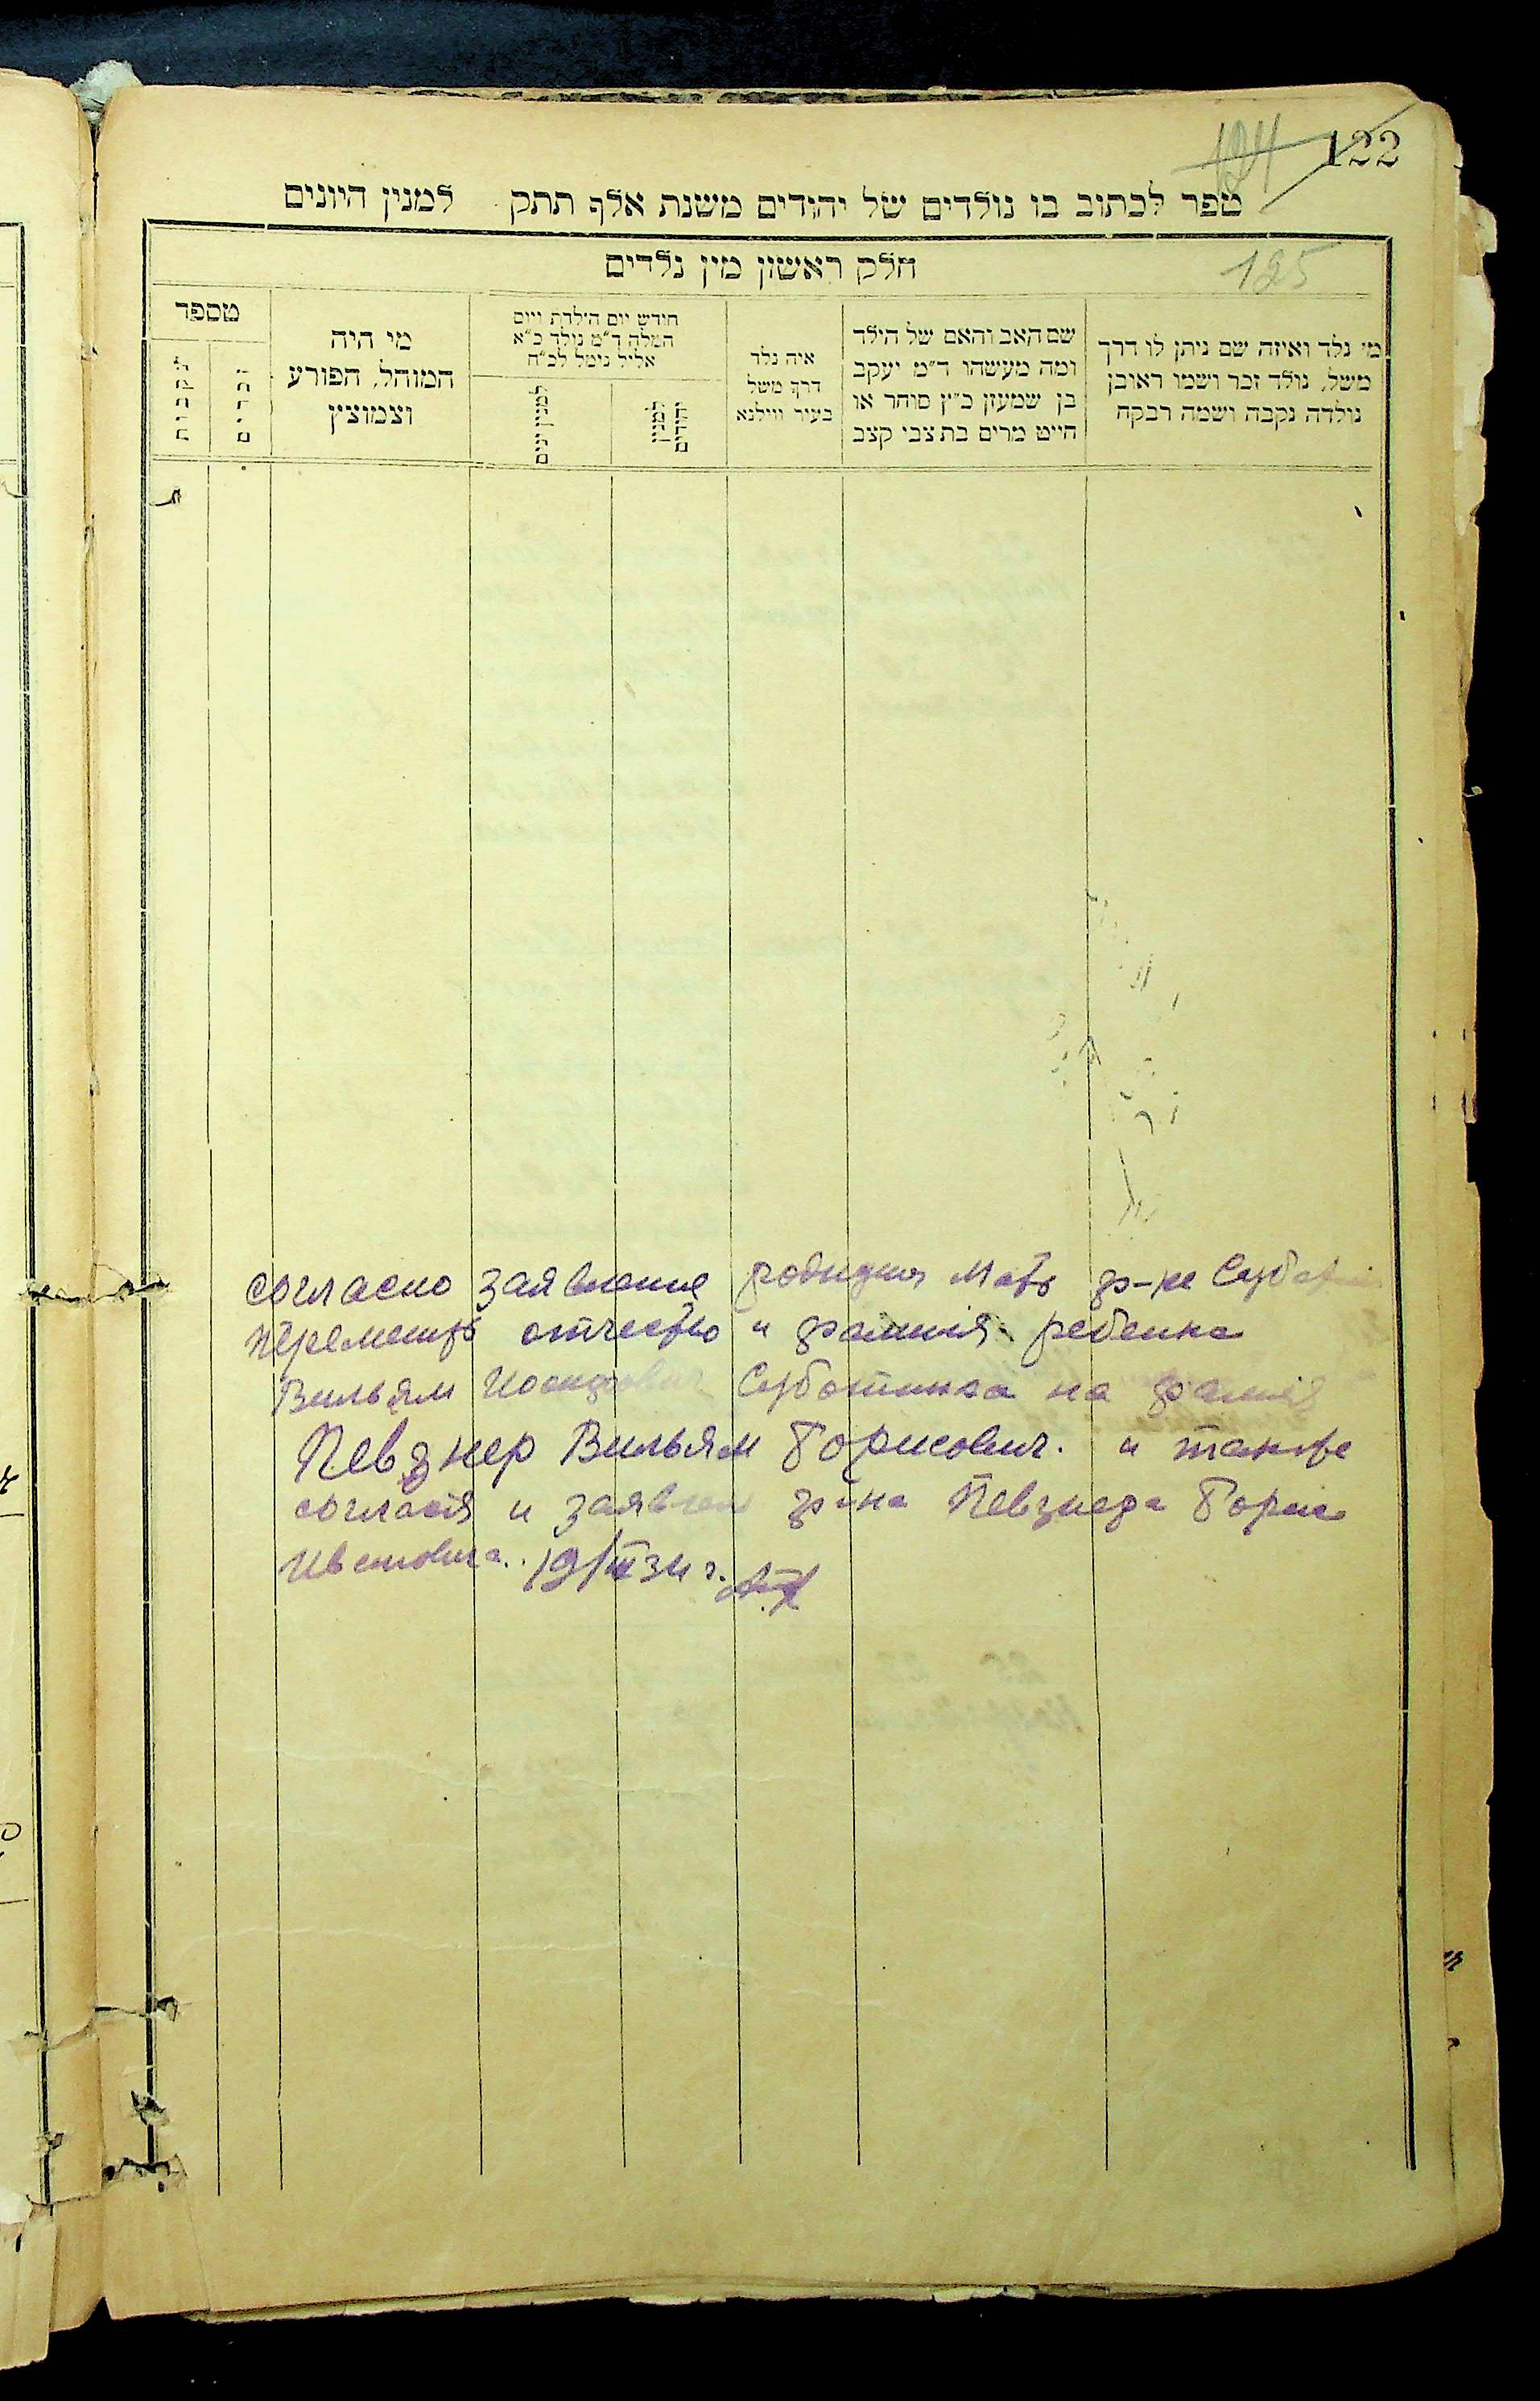 122
124
ספר לכתוב בו נולדים של יהודים משנת אלף תתק למנין היונים
חלק ראשון מין נלדים
125
מי נלד ואיזה שם ניתן לו דרך
משל, נולד זכר ושמו ראובן
נולדה נקבה ושמה רבקה
שם האב והאם של הילד
ומה מעשהו ד"מ יעקב
בן שמעון כ"ץ סוחר או
חייט מרים בת צבי קצב
איה נלד
דרך משל
בעיר ווילנא
חודש יום הילדת ויום
המלה ד"מ נולד כ"א
אליל נימל לכ"ח
למנין יהודים
למנין יונים
מי היה
המוהל, הפורע
וצמוצץ
מספר
זכרים
נקבות
согласно заявление мать гр-ке
отчество и фамилия ребенка
Вильям Суботинка на фамилия
Певзнер Вильям Борисович. и также
согласия и заявлен гр-на Певзнера Борис
19/ 34 г.